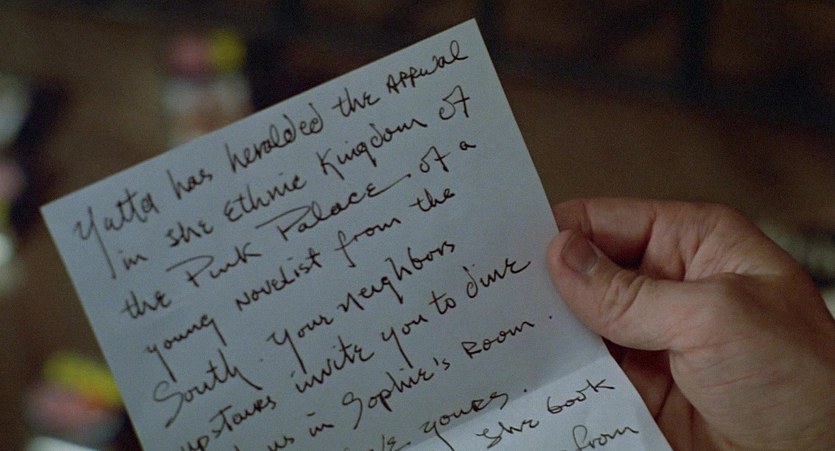 Yetta has heralded the arrival
in the Ethnic Kingdom of
the Pink Palace of a
young novelist from the
South. Your neighbors
upstairs invite you to dine
us in Sophie's Room.
yours.
The book
from